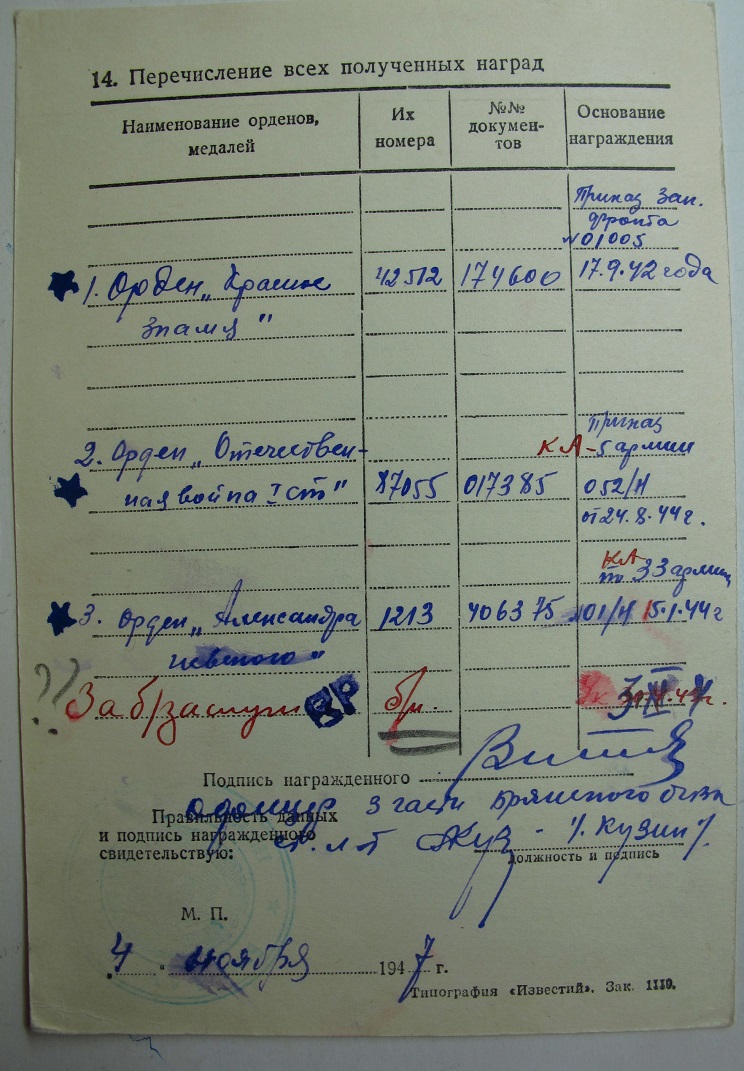 14. Перечисление всех полученных наград
Наименование орденов, медалей
Их номера
№№ докумен-тов
Основание награждения
Приказ Зап.
фронта
№01005
1. Орден „Красное 42512 174600 17.9.42 года
Знамя"
Приказ
2. Орден „Отечествен- КА-5 армии
ная война I ст" 87055 017385 052/Н
от 24.8.44г.
КА
33 армии
3. Орден „Александра 1213 406375 101/Н 15.1.44г
Невского"
?? За б/заслуги ВР б/н.
Подпись награжденного
Правильность данных 3 части Брянского
и подпись награжденного ст. л-т /. Кузин /.
свидетельствую:
Должность и подпись
М. П.
„4" ноября 1947 г.
Типография «Известий». Зак. 1110.